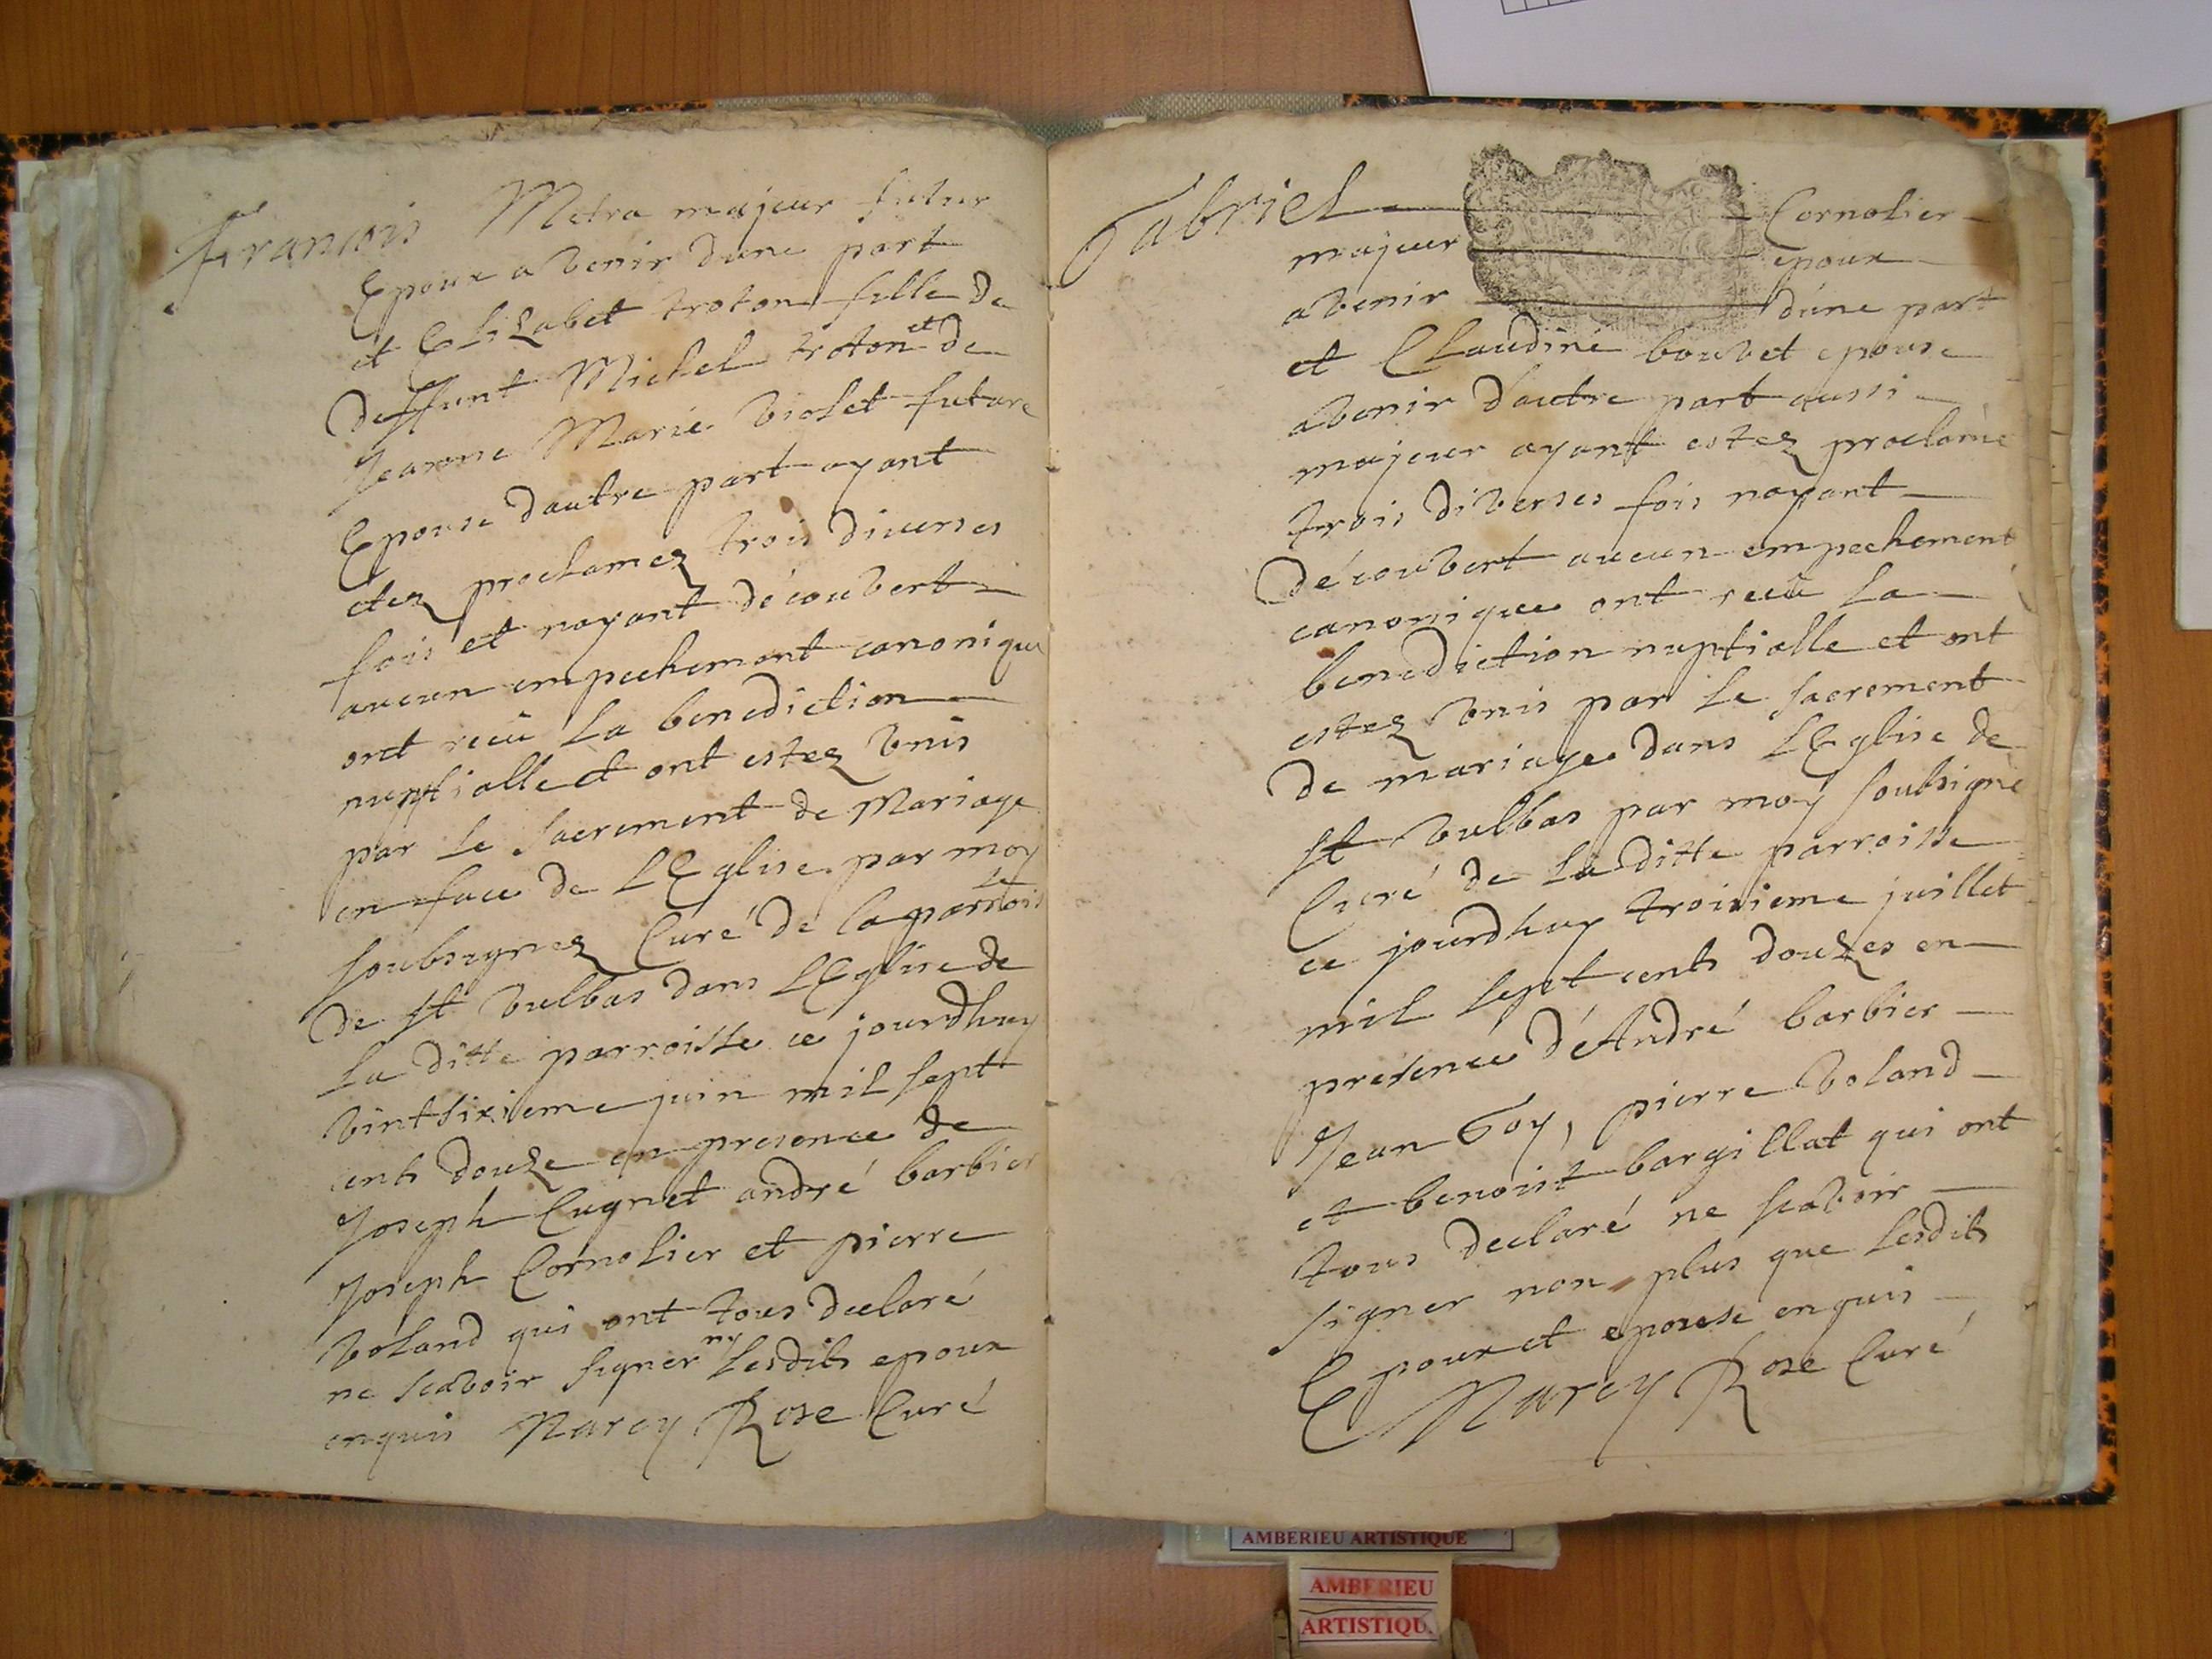 Francois Metra majeur futur
Epoux a venir dune part
et Elizabet troton fille de
deffunt Michel troton et de
Jeanne Marie violet future
Epouse dautre part ayant
etez proclamez trois diverses
fois et nayant découvert
aucun empechement canonique
ont recû la benediction
nuptialle et ont estez vnis
par le sacrement de Mariage
en face de LEglise par moy
soubsignez Curé de la parroisse
de st vulbas dans LEglise de
la ditte parroisse ce jourdhuy
vintsixieme juin mil sept
cents douze en presence de
Joseph Cugnet andré barbier
Joseph Cornolier et pierre
voland qui ont tous declaré
ne scavoir signer ny lesdits epoux
enquis Narcy Rose Curé
Gabriel Cornolier
majeur epoux
avenir dune part
et Claudine bouvet epouse
avenir dautre part aussi
majeur ayant estez proclamé
trois diverses fois nayant
découvert aucun empechement
canonique ont recû la
benediction nuptialle et ont
estez vnis par le sacrement
de mariage dans LEglise de
st vulbas par moy soubsigné
Curé de laditte parroisse
ce jourdhuy troisieme juillet
mil sept cents douzes en
présence d'André barbier
Jean Goy, pierre voland
et benoist bargillat qui ont
tous declaré ne scavoir
signer non plus que lesdits
Epoux et epouse enquis
Narcy Rose Curé
AMBERIEU ARTISTIQUE
AMBERIEU
ARTISTIQU